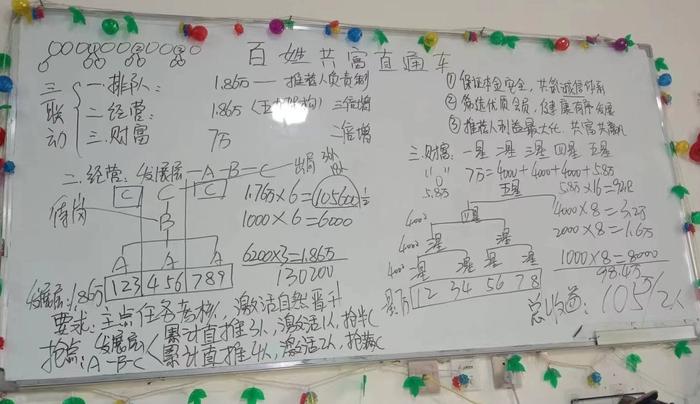 百姓共富直通车
三联动
一排队: 1.865 — 推荐人负责制
二经营: 1.865 三倍增
三.财富 7万 二倍增
① 保证本金安全,共筑诚信体系
② 筛选优质会员,健康有序发展
③ 推荐人利益最大化,共富共赢机
二.经营: 发展层—A—B—C— 出局
C C C
待岗
B
A A A
123 456 789
发展层:1.865
1.765×6=105600
1000×6=6000
6200×3=1.865
130200
三.财富: 一星 二星 三星 四星 五星
"0" 7万=4000+4000+4000+5.85
5.85 五星 5.85×16=92亿
4000×8=3.2万
2000×8=1.6万
1000×8=8000
98.4万
四星
三星 三星
4000
12 34 56 78
总收益: 105万/2人
要求: 主点任务考核,激活自然晋升
抢点: 发展层 累计直推3人,激活1人,抢半C
A-B-C 累计直推4人,激活2人,抢整C